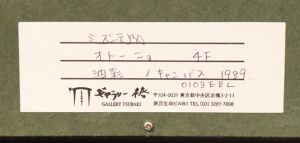 ミズテツオ
オトーニョ 4F
油彩 / キャンバス 1989
0103EEL
ギャラリー椿
GALLERY TSUBAKI
〒104-0031 東京都中央区京橋3-2-11
第百生命ビルB1 TEL(03)3281-7808